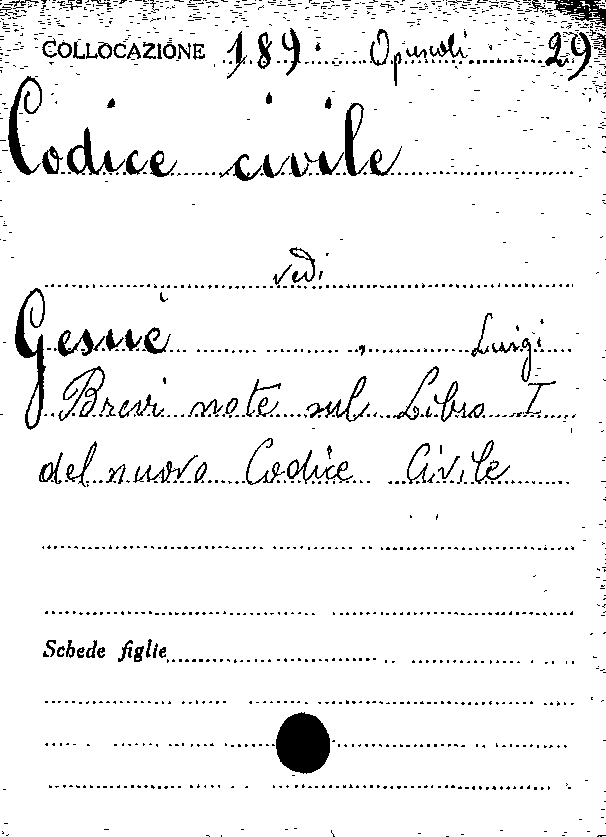 COLLOCAZIONE 189. Opuscoli 29
Codice civile
vedi
Gesuè , Luigi
Brevi note sul Libro I
del nuovo Codice Civile
Schede figlie